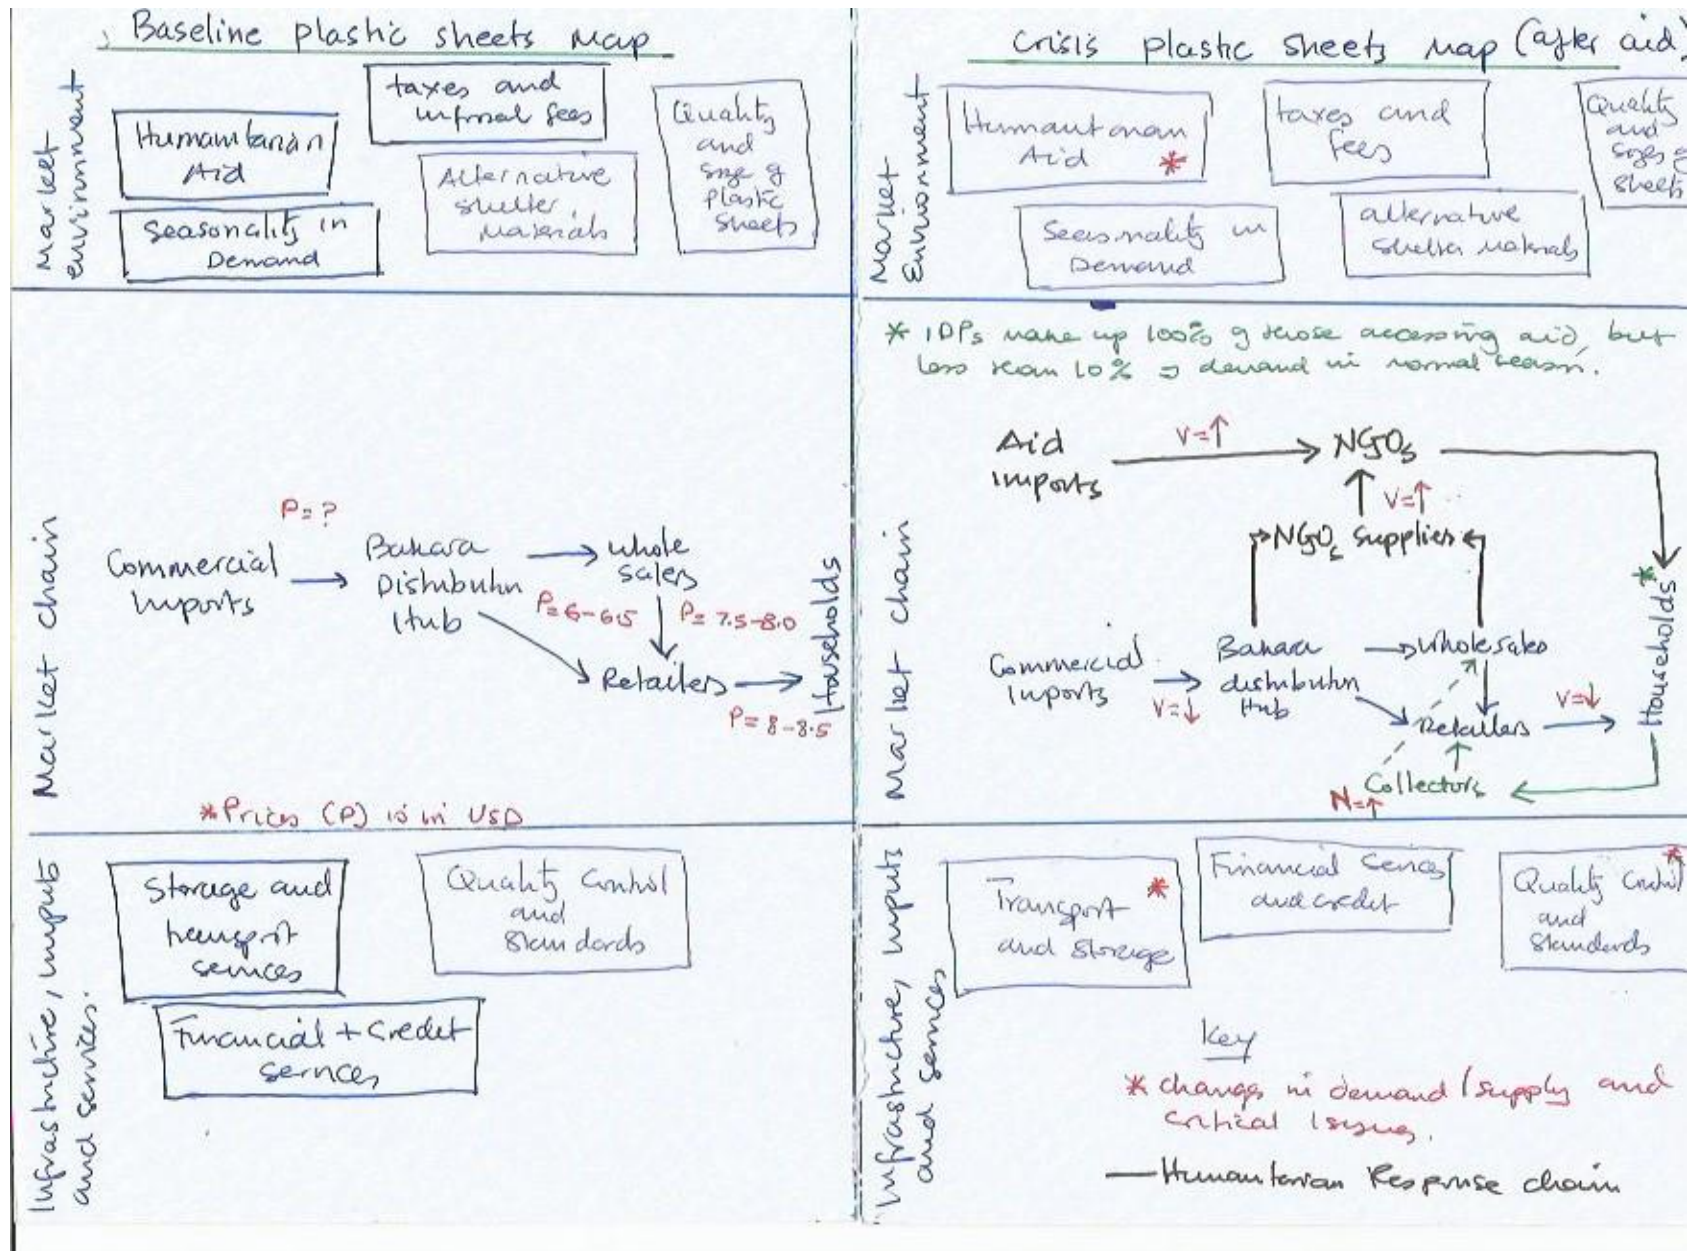 Baseline plastic sheets Map
Market
environment
Humanitarian
Aid
taxes and
informal fees
Quality
and
size of
plastic
sheets
Alternative
shelter
Materials
Seasonality in
Demand
Market chain
P=?
Commercial
Imports
Bakara
Distribution
Hub
whole
salers
P=6-6.5
P=7.5-8.0
Retailers
P=8-8.5
Households
*Prices (P) is in USD
Infrastructure, inputs
and services.
Storage and
transport
services
Quality Control
and
Standards
Financial + Credit
services
Crisis plastic sheets Map (after aid)
Market
Environment
Humanitarian
Aid *
taxes and
fees
Quality
and
sizes of
sheets
Seasonality in
Demand
alternative
shelter materials
* IDPs make up 100% of those accessing aid, but
less than 10% of demand in normal season.
Market chain
Aid
imports
V=↑
NGOs
V=↑
NGOs supplies
Commercial
Imports
V=↓
Bakara
distribution
Hub
Wholesalers
Retailers
V=↓
Households
*
Collectors
N=↑
Infrastructure, inputs
and services
Transport *
and Storage
Financial Services
and credit
*
Quality Control
and
Standards
Key
* changes in demand/supply and
critical issues.
— Humanitarian Response chain